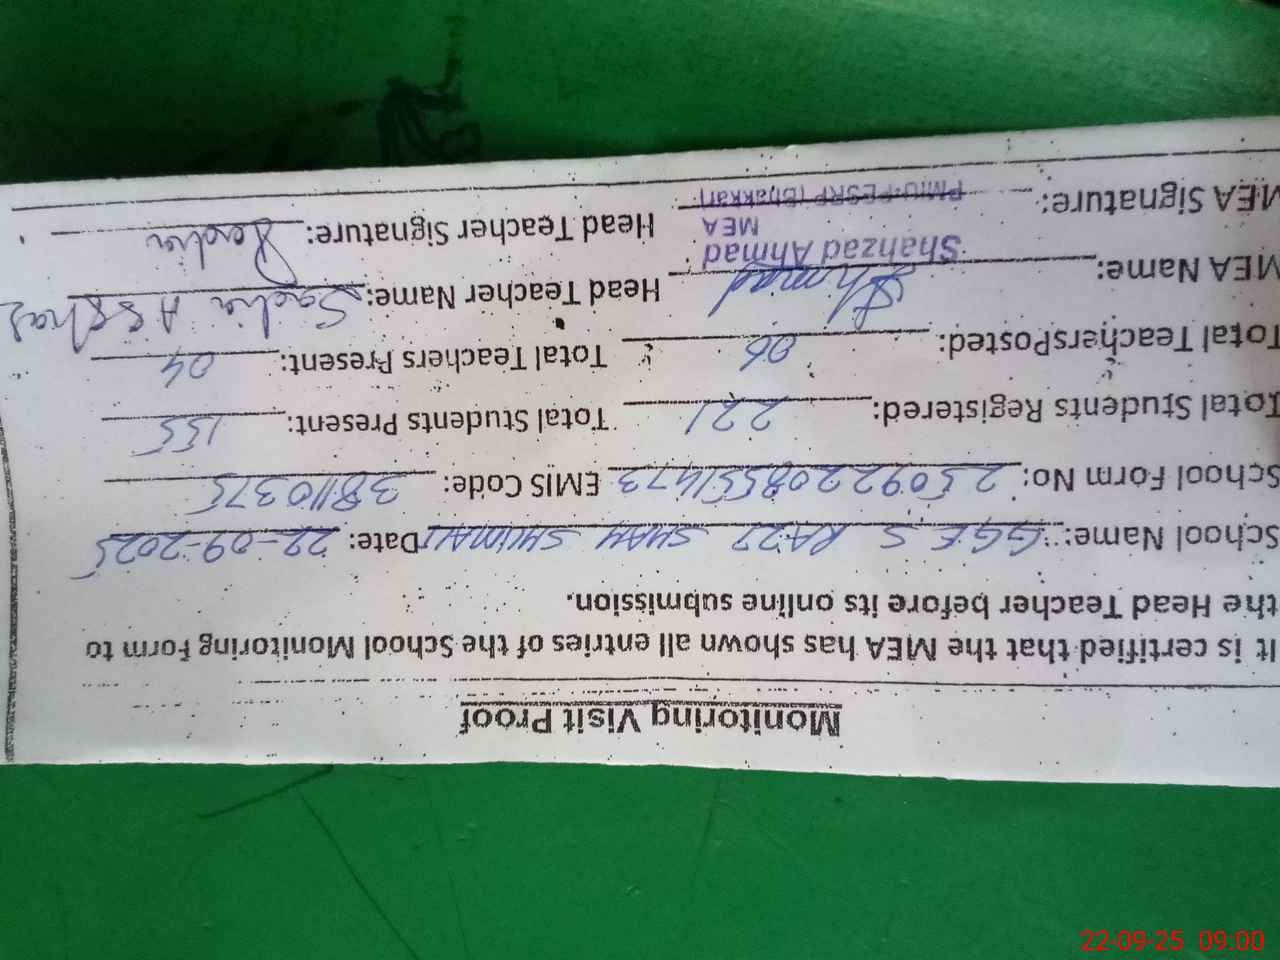 Monitoring Visit Proof
It is certified that the MEA has shown all entries of the School Monitoring Form to
the Head Teacher before its online submission.
School Name: GGES RAZZ SHAH SHUMALI Date: 22-09-2025
School Form No: 25092208551473 EMIS Code: 38110375
Total Students Registered: 221 Total Students Present: 155
Total TeachersPosted: 06 Total Teachers Present: 04
MEA Name: Ahmad Head Teacher Name: Sadia Asghar
Shahzad Ahmad
MEA
MEA Signature: PMIU-PESRP (Bhakkar) Head Teacher Signature: Sadia
22-09-25 09.00